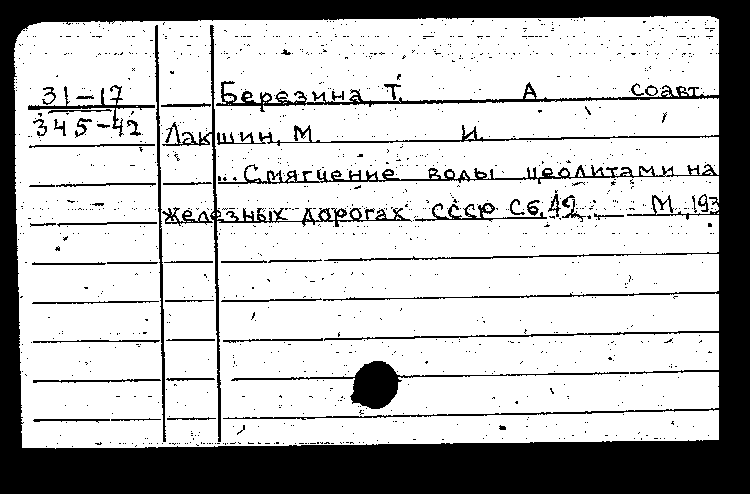 31-17 Березина, Т. А. соавт.
345-42 Лакшин, М. И.
...Смягчение воды цеолитами на
железных дорогах СССР Сб. 42 М., 193